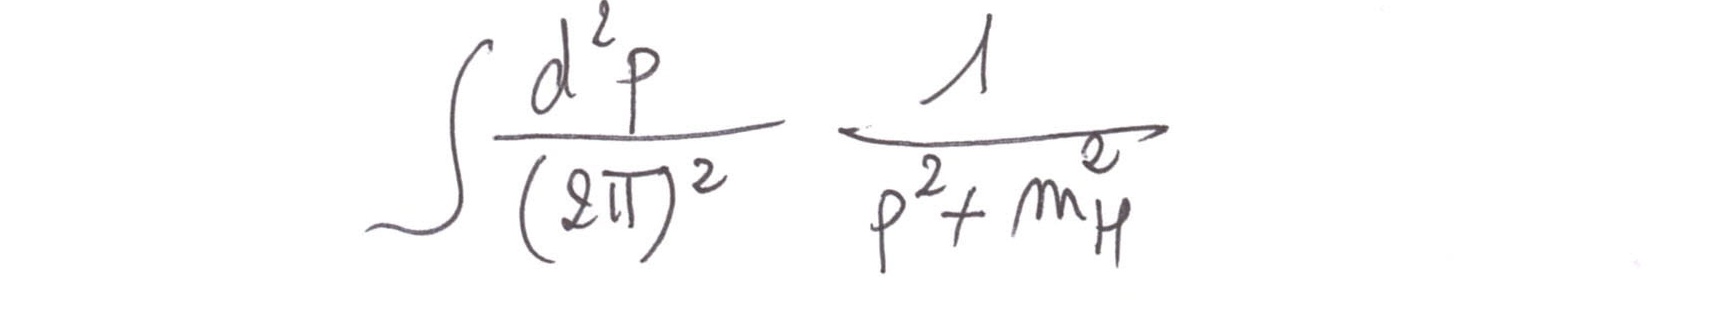 ∫ d²p/(2π)² 1/(p² + m_H²)